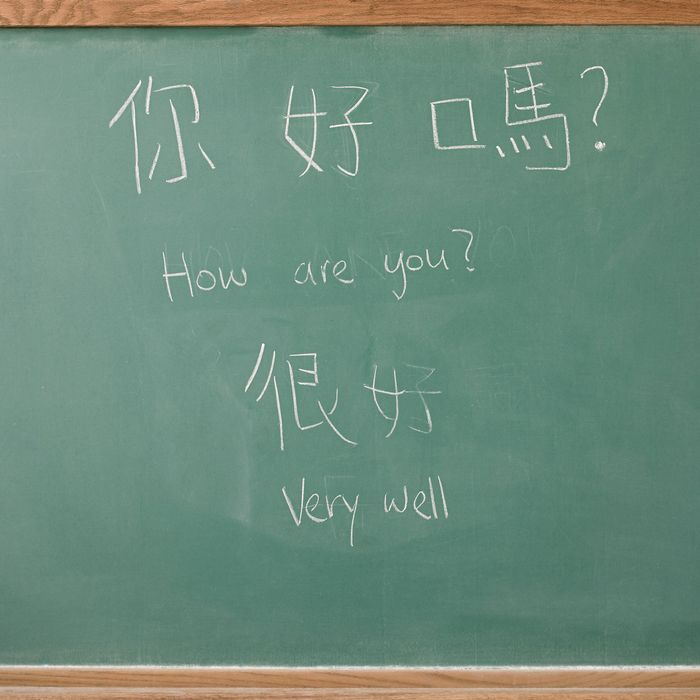 你好嗎?
How are you?
很好
Very well